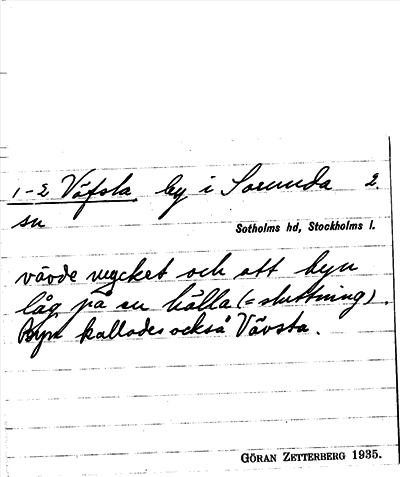 1-2 Väfsta by i Sorunda 2.
sn
Sotholms hd, Stockholms l.
vävde mycket och att byn
låg på en hälla (= sluttning).
Byn kallades också Vävsta.
GÖRAN ZETTERBERG 1935.